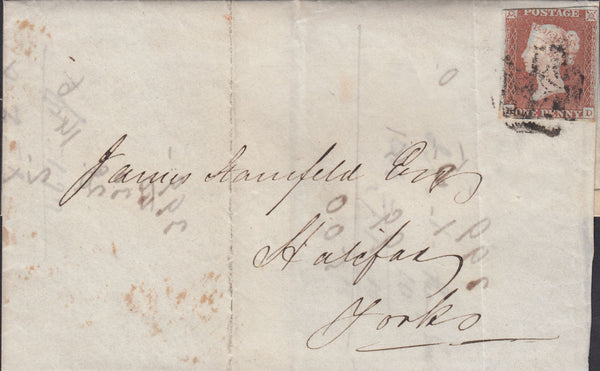 POSTAGE
ONE PENNY D
James Stansfeld Esq
Halifax
Yorks